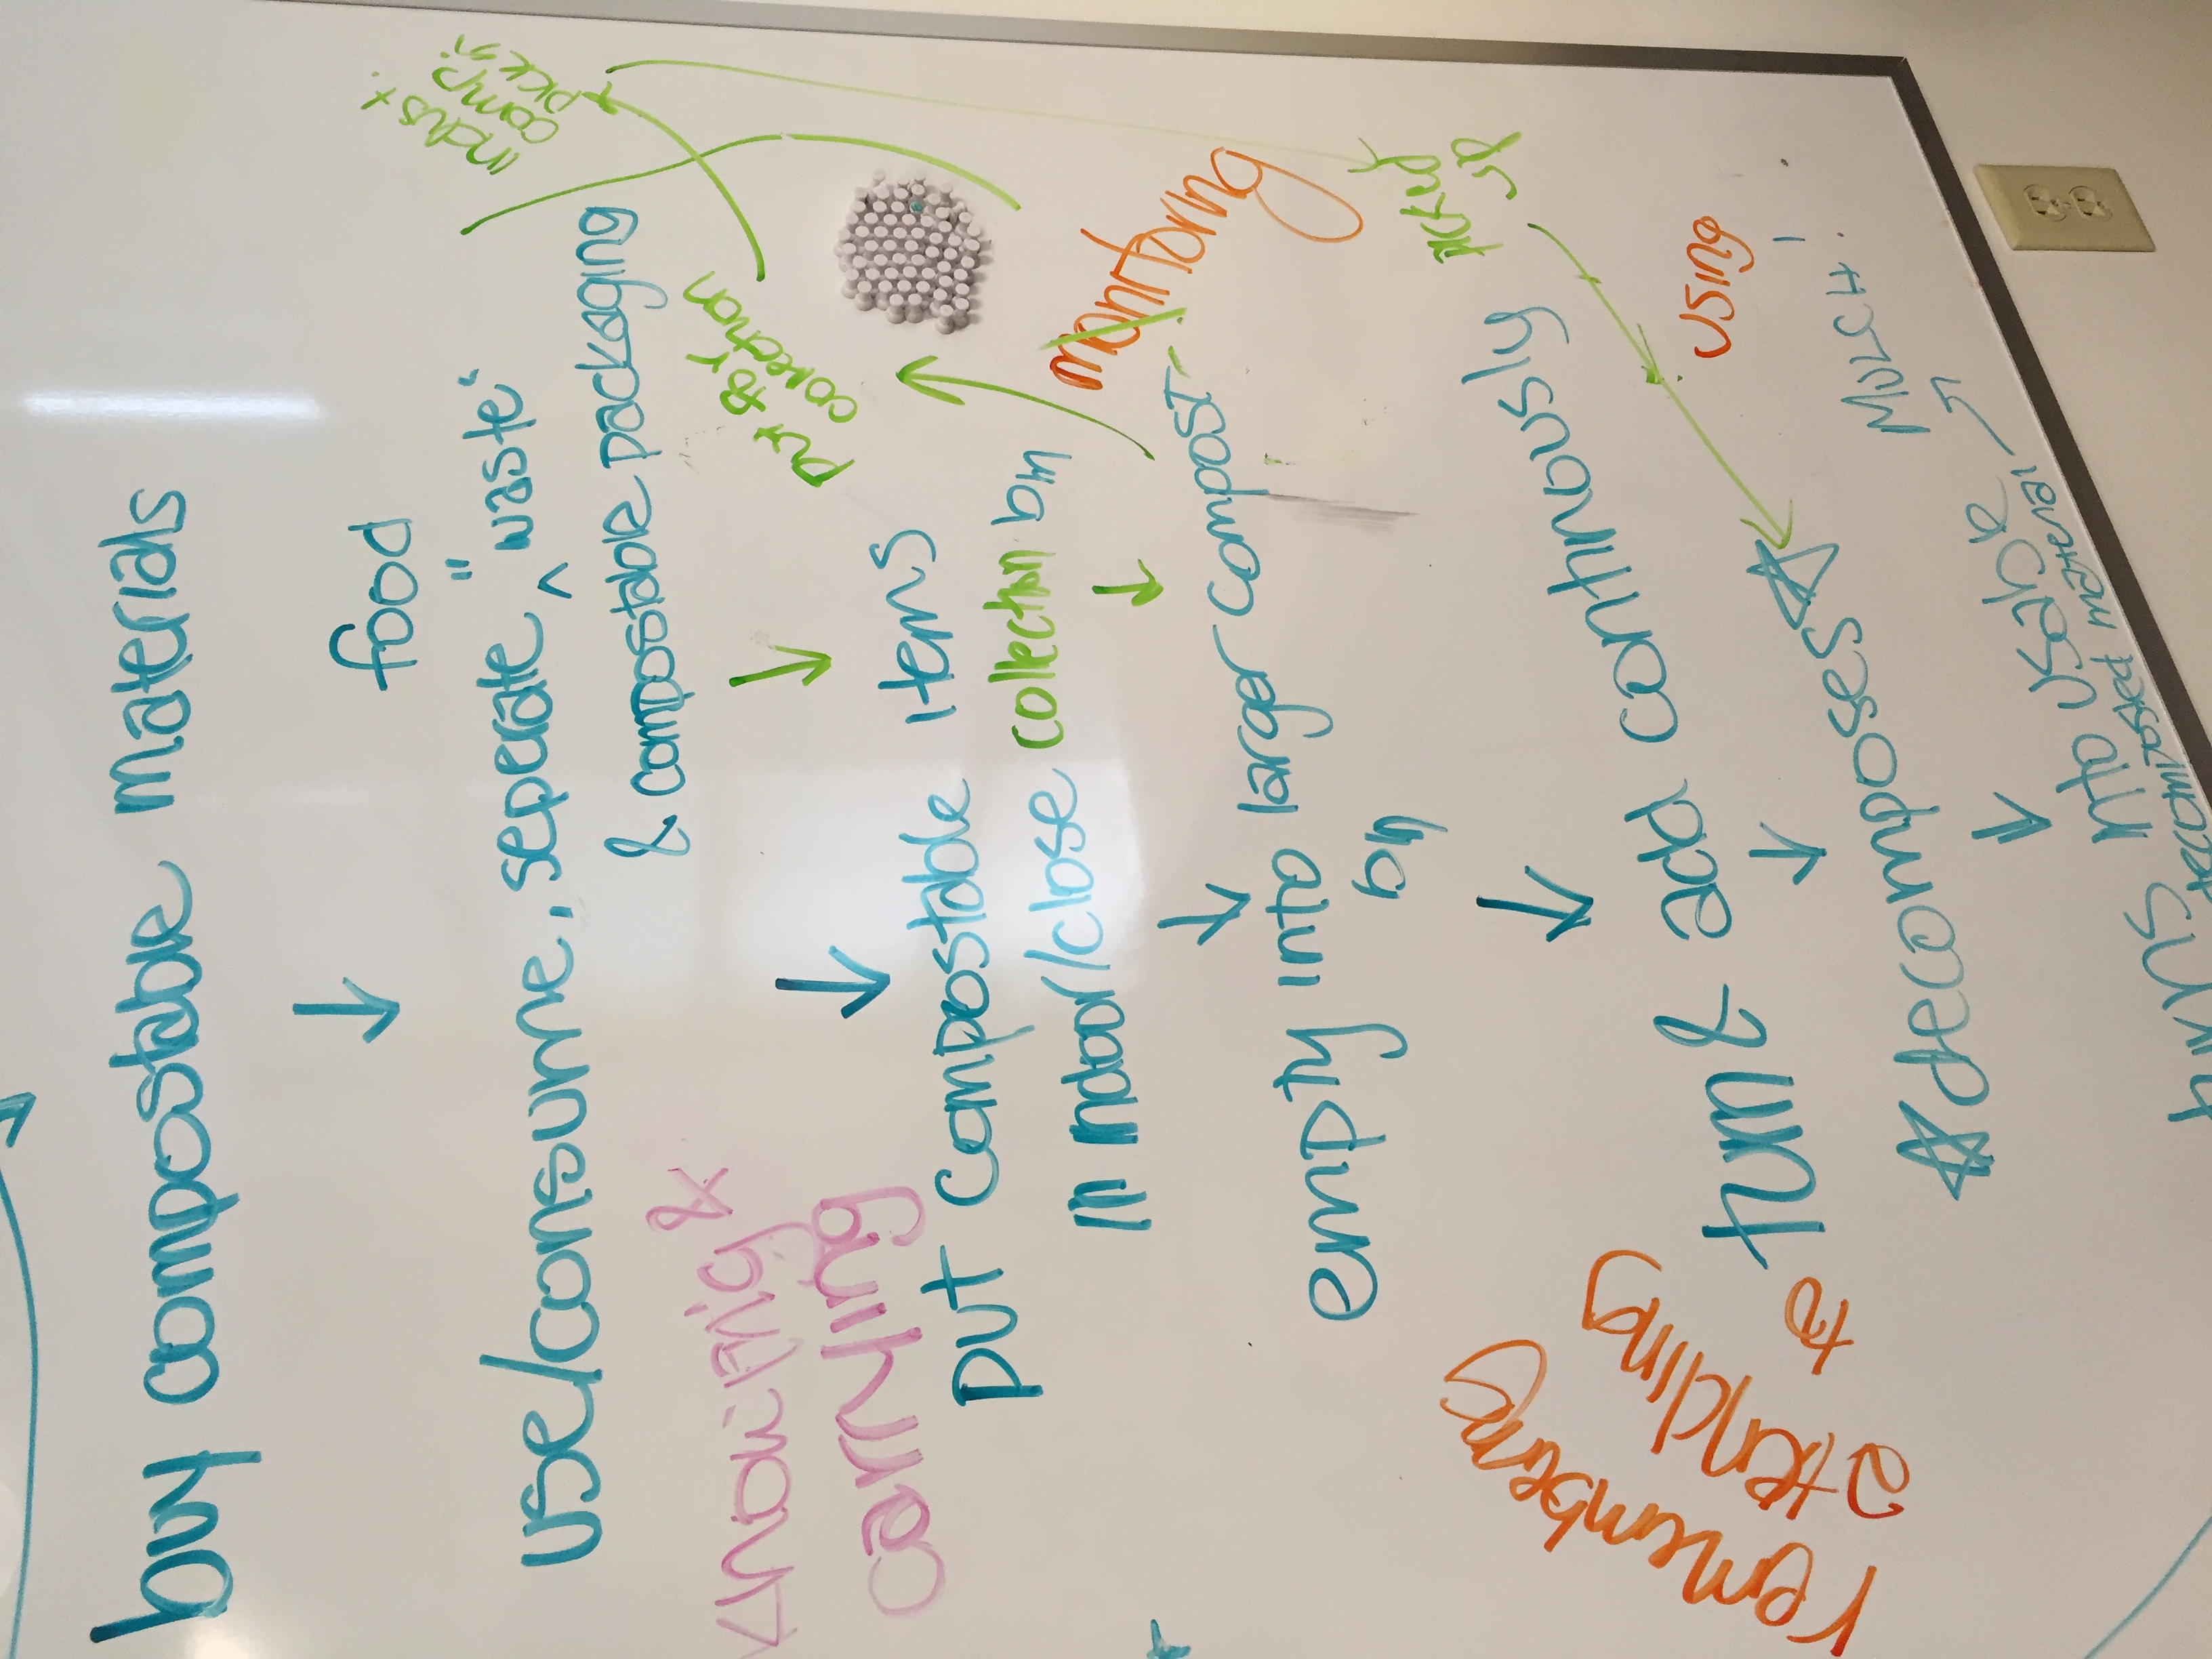 buy compostable materials
food
use/consume, seperate "waste"
& compostable packaging
knowing &
carrying
put compostable items
in indoor/close collection bin
put for
collection
indust.
comp
empty into larger compost
bin
monitoring
picked
up
remembering
atending
to
turn & add continuously
decomposes
using
turns into usable
decomposed material
MULCH!